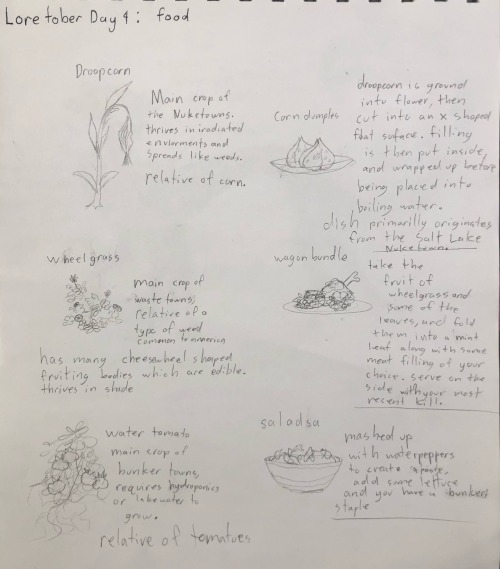 Loretober Day 4: food
Droopcorn
Main crop of
the Nuketowns.
thrives in iradiated
enviorments and
spreads like weeds.
relative of corn.
Corn dumples
droopcorn is ground
into flower, then
cut into an x shaped
flat surface. filling
is then put inside,
and wrapped up before
being placed into
boiling water.
dish primarilly originates
from the Salt Lake
Nuketown.
wheelgrass
main crop of
waste towns,
relative of a
type of weed
common to america
has many cheesewheel shaped
fruiting bodies which are edible.
thrives in shade
wagon bundle
take the
fruit of
wheelgrass and
some of the
leaves, and fold
them into a mint
leaf along with some
meat filling of your
choice. serve on the
side with your most
recent kill.
water tomato
main crop of
bunker towns,
requres hydroponics
or lakewater to
grow.
relative of tomatoes
saladsa
mashed up
with waterpeppers
to create a paste.
add some lettuce
and you have a bunkers
staple